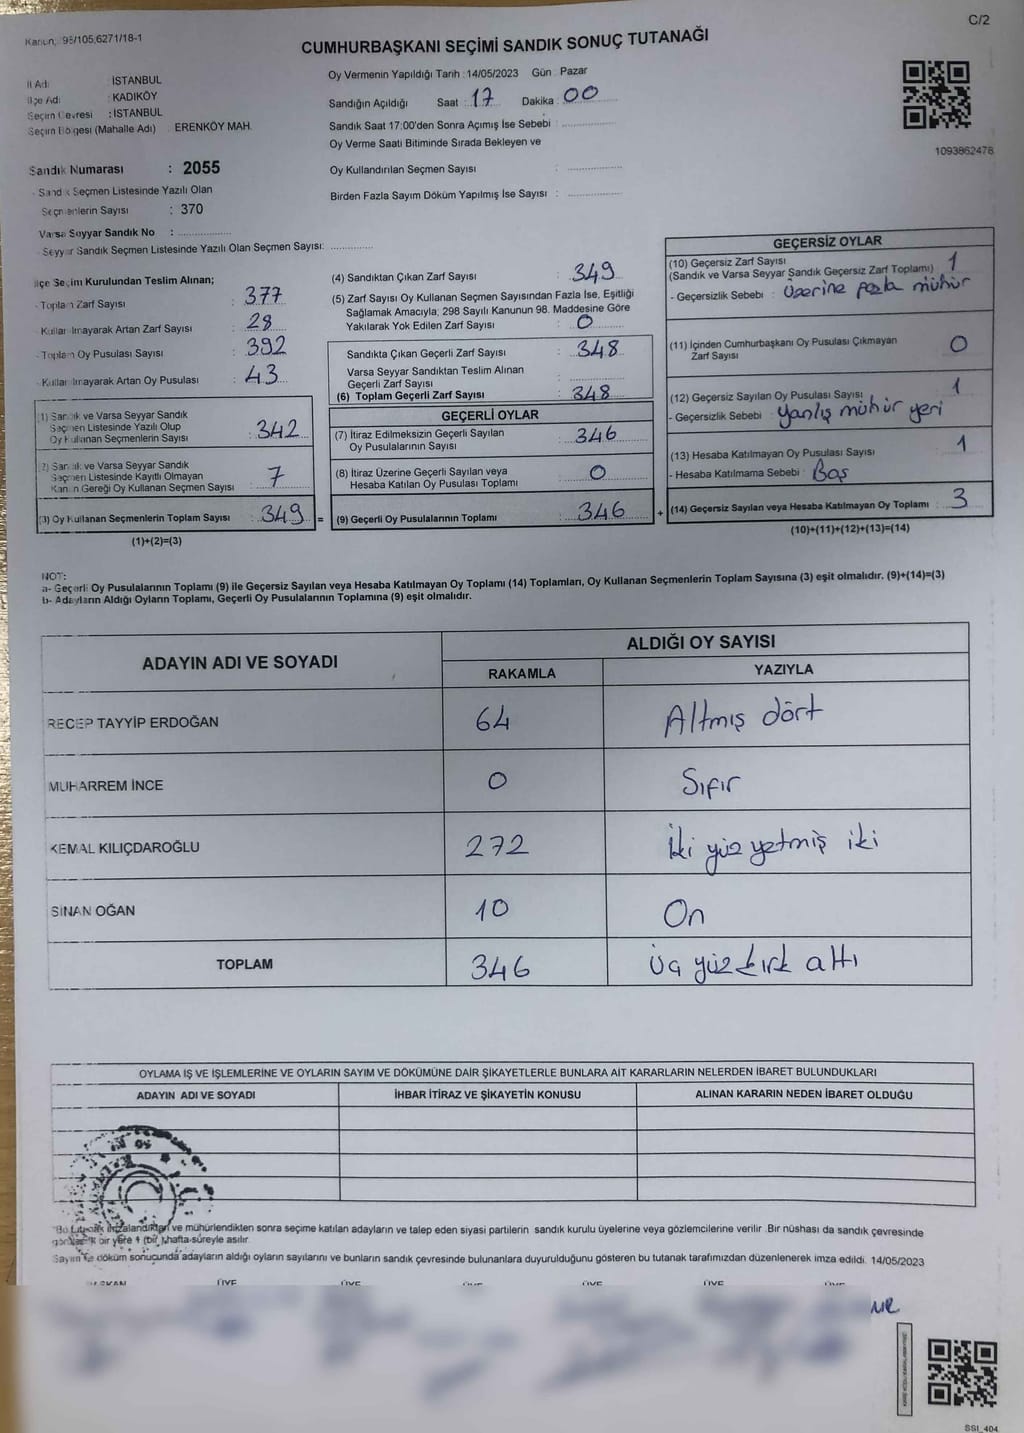 C/2
Kanun: 98/105,6271/18-1
CUMHURBAŞKANI SEÇİMİ SANDIK SONUÇ TUTANAĞI
İl Adı : İSTANBUL
İlçe Adı : KADIKÖY
Seçim Çevresi : İSTANBUL
Seçim Bölgesi (Mahalle Adı) ERENKÖY MAH.
Sandık Numarası : 2055
- Sandık Seçmen Listesinde Yazılı Olan
Seçmenlerin Sayısı : 370
Varsa Seyyar Sandık No :
- Seyyar Sandık Seçmen Listesinde Yazılı Olan Seçmen Sayısı:
Oy Vermenin Yapıldığı Tarih :14/05/2023 Gün : Pazar
Sandığın Açıldığı Saat : 17 Dakika : 00
Sandık Saat 17:00'den Sonra Açımış İse Sebebi :
Oy Verme Saati Bitiminde Sırada Bekleyen ve
Oy Kullandırılan Seçmen Sayısı :
Birden Fazla Sayım Döküm Yapılmış İse Sayısı :
1093862478
İlçe Seçim Kurulundan Teslim Alınan;
- Toplam Zarf Sayısı : 377
- Kullanılmayarak Artan Zarf Sayısı : 28
- Toplam Oy Pusulası Sayısı : 392
- Kullanılmayarak Artan Oy Pusulası : 43
(1) Sandık ve Varsa Seyyar Sandık
Seçmen Listesinde Yazılı Olup
Oy Kullanan Seçmenlerin Sayısı : 342
(2) Sandık ve Varsa Seyyar Sandık
Seçmen Listesinde Kayıtlı Olmayan
Kanun Gereği Oy Kullanan Seçmen Sayısı : 7
(3) Oy Kullanan Seçmenlerin Toplam Sayısı : 349 =
(1)+(2)=(3)
(4) Sandıktan Çıkan Zarf Sayısı : 349
(5) Zarf Sayısı Oy Kullanan Seçmen Sayısından Fazla İse, Eşitliği
Sağlamak Amacıyla; 298 Sayılı Kanunun 98. Maddesine Göre
Yakılarak Yok Edilen Zarf Sayısı : 0
Sandıkta Çıkan Geçerli Zarf Sayısı : 348
Varsa Seyyar Sandıktan Teslim Alınan
Geçerli Zarf Sayısı :
(6) Toplam Geçerli Zarf Sayısı : 348
GEÇERLİ OYLAR
(7) İtiraz Edilmeksizin Geçerli Sayılan
Oy Pusulalarının Sayısı : 346
(8) İtiraz Üzerine Geçerli Sayılan veya
Hesaba Katılan Oy Pusulası Toplamı : 0
(9) Geçerli Oy Pusulalarının Toplamı : 346 +
GEÇERSİZ OYLAR
(10) Geçersiz Zarf Sayısı
(Sandık ve Varsa Seyyar Sandık Geçersiz Zarf Toplamı) : 1
- Geçersizlik Sebebi : Üzerine fazla mühür
(11) İçinden Cumhurbaşkanı Oy Pusulası Çıkmayan
Zarf Sayısı : 0
(12) Geçersiz Sayılan Oy Pusulası Sayısı : 1
- Geçersizlik Sebebi : Yanlış mühür yeri
(13) Hesaba Katılmayan Oy Pusulası Sayısı : 1
- Hesaba Katılmama Sebebi : Boş
(14) Geçersiz Sayılan veya Hesaba Katılmayan Oy Toplamı : 3
(10)+(11)+(12)+(13)=(14)
NOT:
a- Geçerli Oy Pusulalarının Toplamı (9) ile Geçersiz Sayılan veya Hesaba Katılmayan Oy Toplamı (14) Toplamları, Oy Kullanan Seçmenlerin Toplam Sayısına (3) eşit olmalıdır. (9)+(14)=(3)
b- Adayların Aldığı Oyların Toplamı, Geçerli Oy Pusulalarının Toplamına (9) eşit olmalıdır.
ADAYIN ADI VE SOYADI ALDIĞI OY SAYISI
RAKAMLA YAZIYLA
RECEP TAYYİP ERDOĞAN 64 Altmış dört
MUHARREM İNCE 0 Sıfır
KEMAL KILIÇDAROĞLU 272 İki yüz yetmiş iki
SİNAN OĞAN 10 On
TOPLAM 346 Üç yüz kırk altı
OYLAMA İŞ VE İŞLEMLERİNE VE OYLARIN SAYIM VE DÖKÜMÜNE DAİR ŞİKAYETLERLE BUNLARA AİT KARARLARIN NELERDEN İBARET BULUNDUKLARI
ADAYIN ADI VE SOYADI İHBAR İTİRAZ VE ŞİKAYETİN KONUSU ALINAN KARARIN NEDEN İBARET OLDUĞU
*Bu tutanak imzalandıktan ve mühürlendikten sonra seçime katılan adayların ve talep eden siyasi partilerin sandık kurulu üyelerine veya gözlemcilerine verilir .Bir nüshası da sandık çevresinde
bir yere 1 (bir) hafta süreyle asılır.
Sayım ve döküm sonucunda adayların aldığı oyların sayılarını ve bunların sandık çevresinde bulunanlara duyurulduğunu gösteren bu tutanak tarafımızdan düzenlenerek imza edildi. 14/05/2023
BAŞKAN ÜYE ÜYE ÜYE ÜYE ÜYE ÜYE
SSI_404